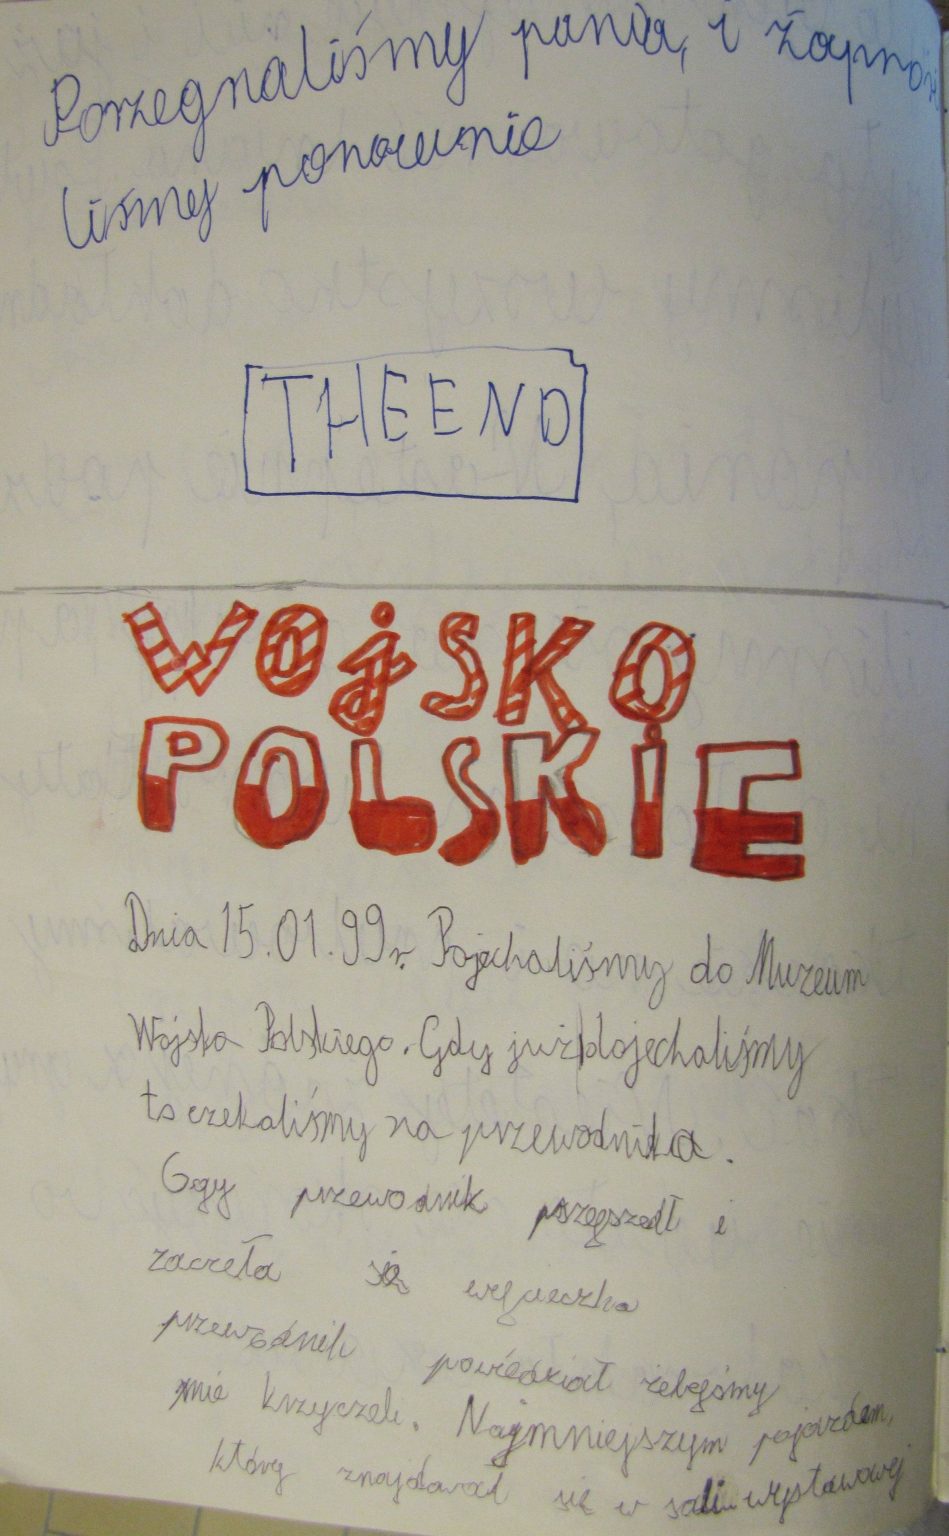 Porzegnaliśmy panią, i zapros
liśmy ponownie
THE END
WOjSKO
POLSKiE
Dnia 15.01.99r. Pojechaliśmy do Muzeum
Wojska Polskiego. Gdy już dojechaliśmy
to czekaliśmy na przewodnika.
Gdy przewodnik przyszedł i
zaczeła się wycieczka
przewodnik powiedział żebyśmy
nie krzyczeli. Najmniejszym pojazdem,
który znajdował się w sali wystawowej